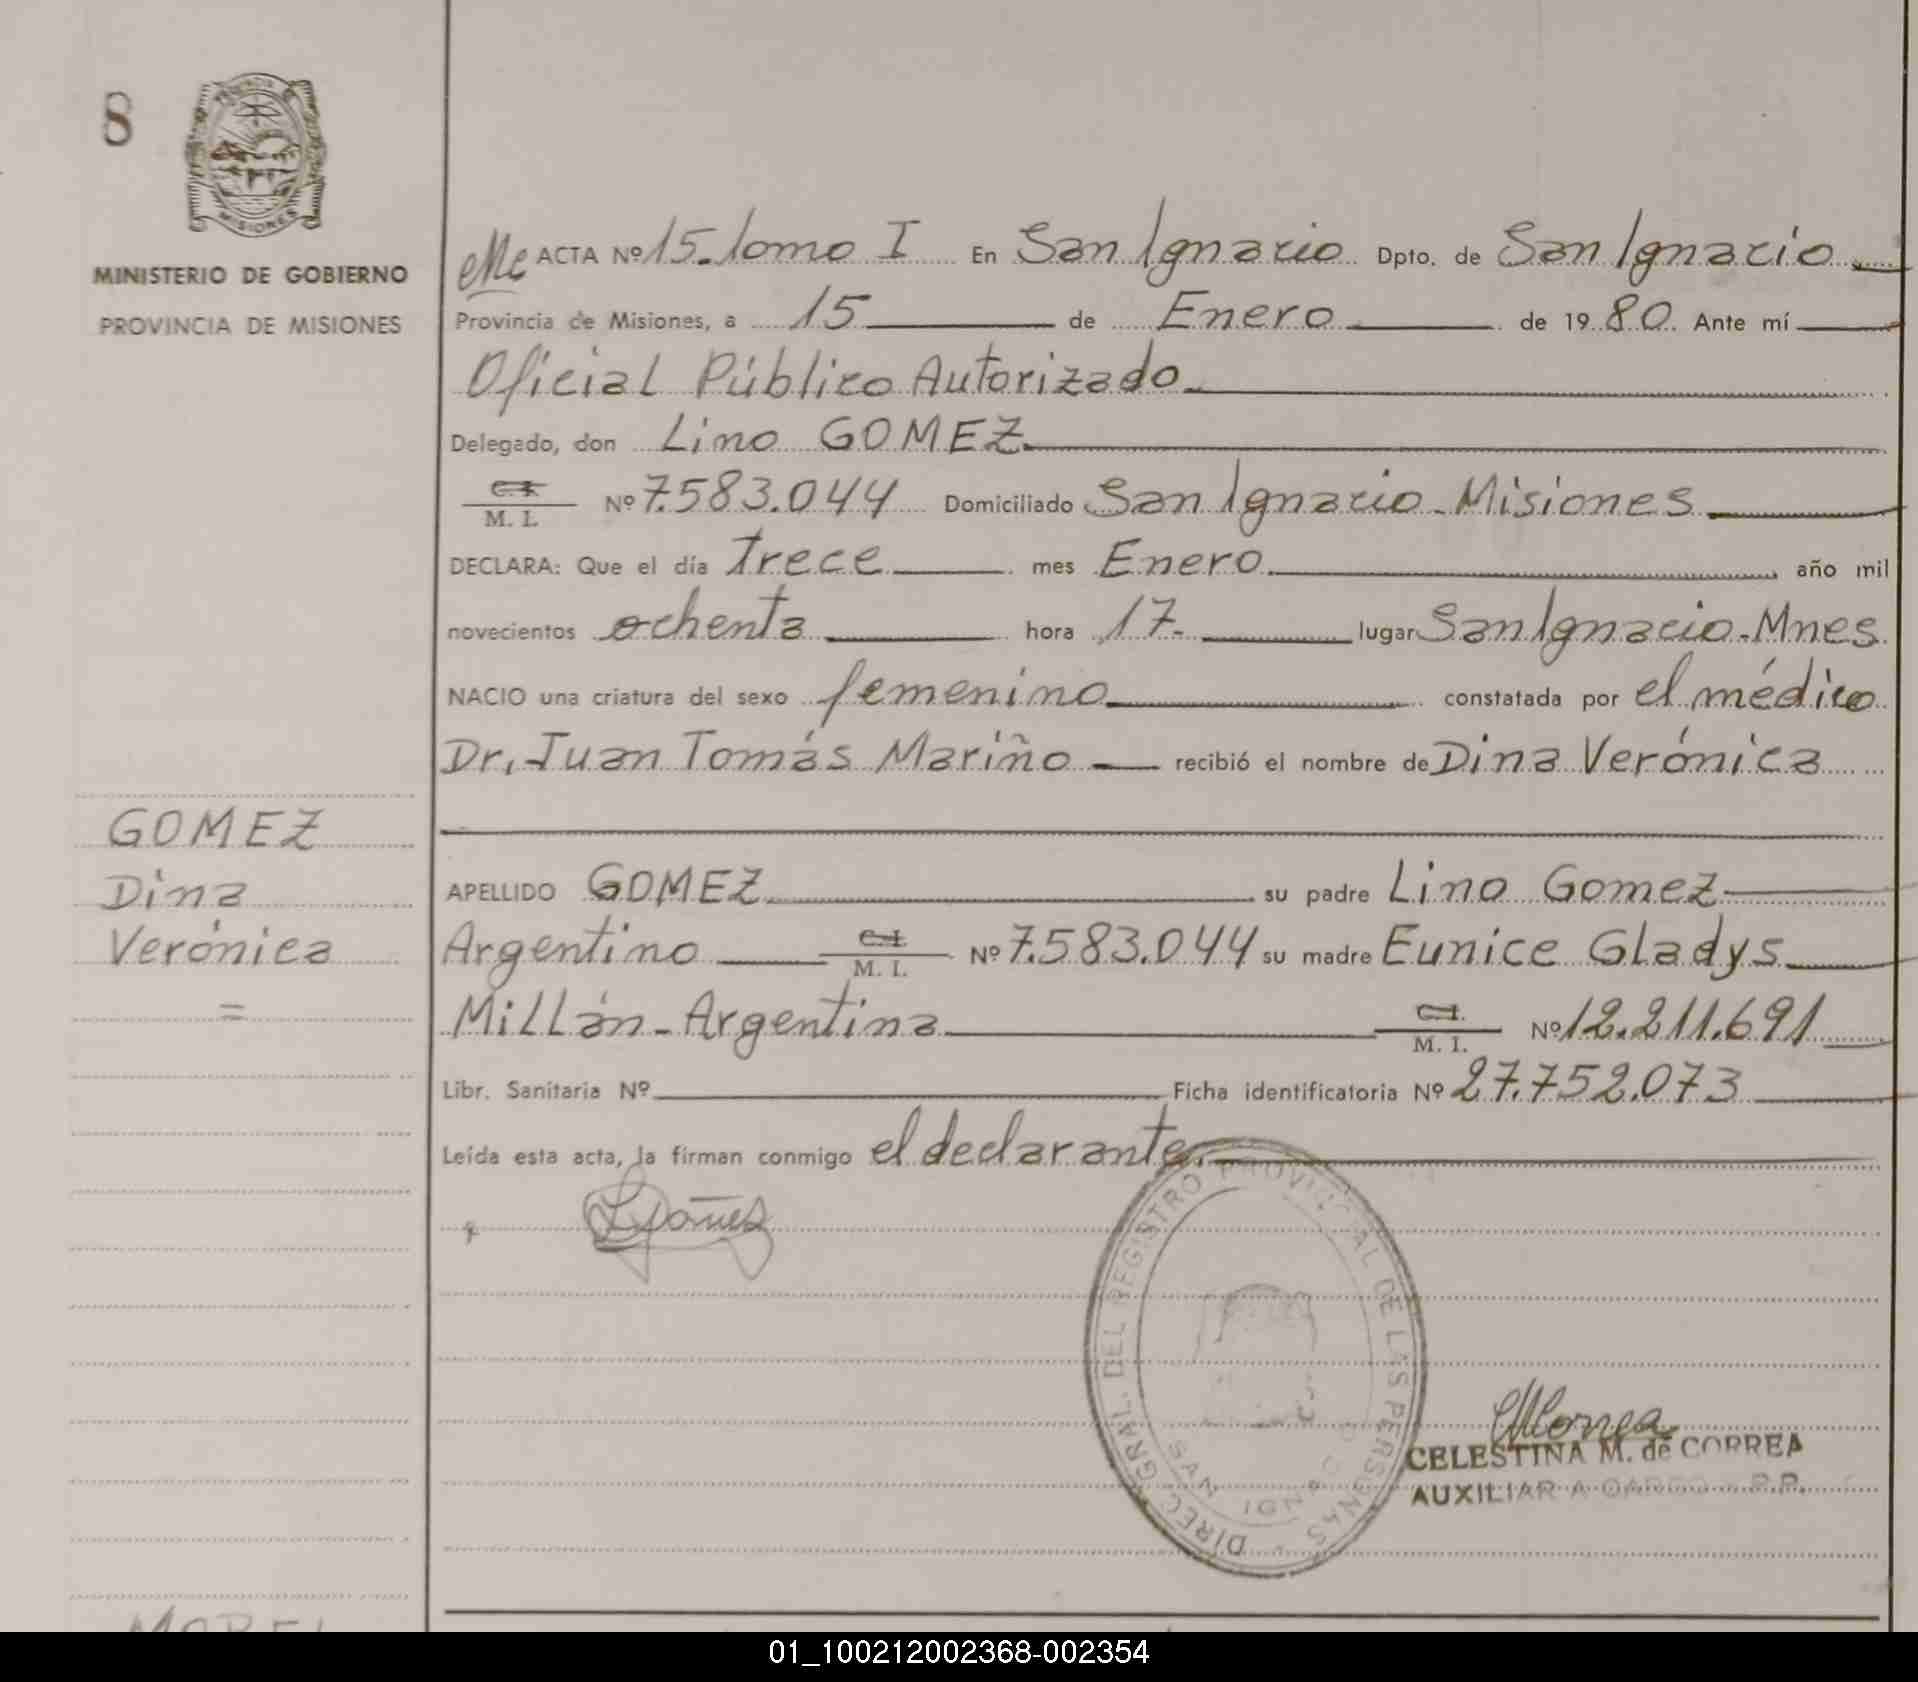 8
PROVINCIA DE
MISIONES
MINISTERIO DE GOBIERNO
PROVINCIA DE MISIONES
ACTA Nº 15. Tomo I En San Ignacio Dpto. de San Ignacio
Provincia de Misiones, a 15 de Enero de 1980. Ante mí
Oficial Público Autorizado
Delegado, don Lino GOMEZ
C.I.
M. I. Nº 7.583.044 Domiciliado San Ignacio - Misiones
DECLARA: Que el día Trece mes Enero, año mil
novecientos ochenta hora 17. lugar San Ignacio - Mnes.
NACIO una criatura del sexo femenino constatada por el médico
Dr. Juan Tomás Mariño recibió el nombre de Dina Verónica
GOMEZ
Dina
Verónica
=
APELLIDO GOMEZ su padre Lino Gomez
Argentino C.I.
M. I. Nº 7.583.044 su madre Eunice Gladys
Millán - Argentina C.I.
M. I. Nº 12.211.691
Libr. Sanitaria Nº Ficha identificatoria Nº 27.752.073
Leída esta acta, la firman conmigo el declarante.
DIREC. GRAL. DEL REGISTRO PROVINCIAL DE LAS PERSONAS
SAN IGNACIO
CELESTINA M. de CORREA
AUXILIAR A CARGO R.P.
01_100212002368-002354